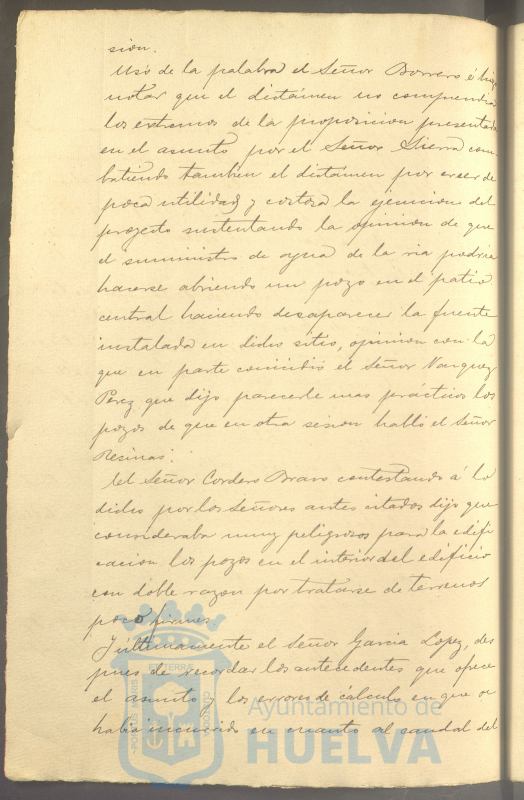 sion.
Usó de la palabra el Señor Borrero é hizo
notar que el dictámen no comprendia
los estremos de la proposicion presentada
en el asunto por el Señor Sierra com-
batiendo tambien el dictámen por creer de
poca utilidad y costosa la ejecucion del
proyecto sustentando la opinion de que
el suministro de agua de la ria podria
hacerse abriendo un pozo en el patio
central haciendo desaparecer la fuente
instalada en dicho sitio, opinion con la
que en parte coincidió el Señor Vazquez
Perez que dijo parecerle mas práctico los
pozos de que en otra sesion habló el Señor
Resinas.
El Señor Cordero Bravo contestando á lo
dicho por los Señores antes citados dijo que
consideraba muy peligrosos para la edifi
cacion los pozos en el interior del edificio
con doble razon por tratarse de terrenos
poco firmes.
Y últimamente el Señor Garcia Lopez, des
pues de recordar los antecedentes que ofrece
el asunto y los errores de calculo en que se
habia incurrido en cuanto al caudal del
Ayuntamiento de
HUELVA